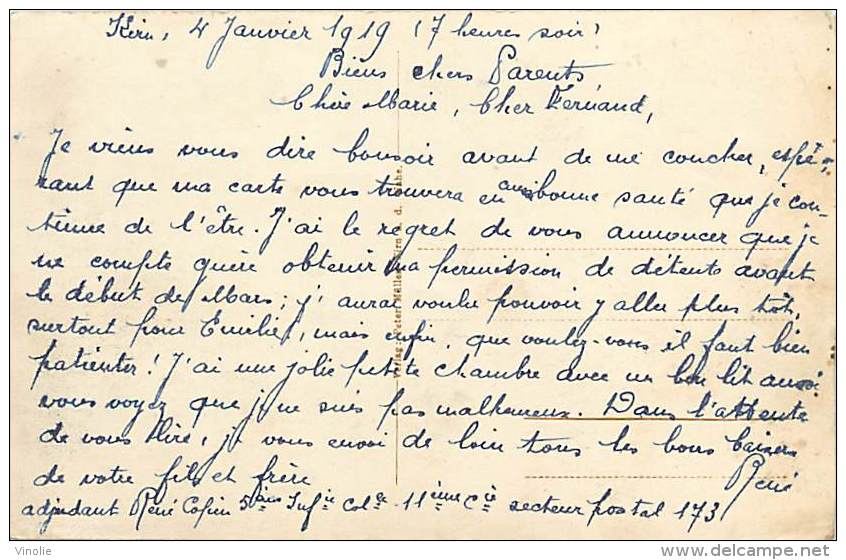 Kirn, 4 Janvier 1919 (7 heures soir)
Biens chers Parents
Chère Marie, Cher Fernand,
Je viens vous dire bonsoir avant de me coucher, espé-
rant que ma carte vous trouvera en aussi bonne santé que je con-
tinue de l'être. J'ai le regret de vous annoncer que je
ne compte guère obtenir ma permission de détente avant
le début de Mars; j'aurai voulu pouvoir y aller plus tôt,
surtout pour Emilie, mais enfin, que voulez-vous il faut bien
patienter! J'ai une jolie petite chambre avec un bon lit aussi
vous voyez que je ne suis pas malheureux. Dans l'attente
de vous lire, je vous envoi de loin tous les bons baisers
de votre fils et frère
René
adjudant René 5ème Infie Colle 11ème Cie secteur postal 173
Verlag: Peter Müller, Kirn a. d. Nahe.
Vinolie
delcampe.net